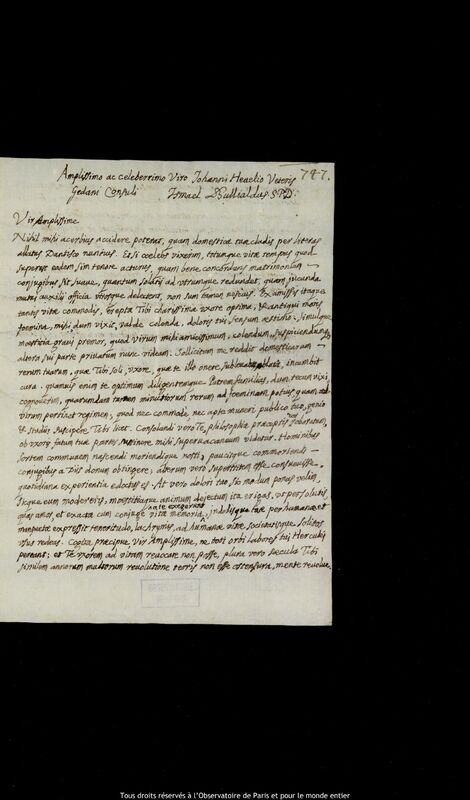 747.
Amplissimo ac celeberrimo Viro Johanni Hevelio Veteris
Gedani Consuli Ismael Bullialdus S.P.D.
Vir Amplissime
Nihil mihi acerbius accidere poterat, quam domesticæ tuæ cladis per literas
allatus Dantisco nuntius. Etsi cœlebs vixerim, vitæ tempus quod
superest eodem sim tenore acturus, quam bene concordans matrimonium
conjugibus sit suave, quantum solatii ad utrumque redundet, quam jucunda
mutui auxilii officia utrosque delectent, non sum tamen nescius. Examissis itaque
tantis vitæ commodis, erepta Tibi clarissima uxore optima, & antiqui moris
fœmina, mihi dum vixit, valde colenda, doloris tui sensum æstimo; simulque
mœstitia gravi premor, quod virum mihi amicissimum, colendum, suspiciendumque
altera sui parte privatum nunc videam. Sollicitum me reddit domesticarum
rerum tuarum, quæ Tibi soli, uxore, quæ te illo onere, incumbit
cura. quamvis enim te optimum diligentemque Patremfamilias, dum tecum vixi
cognoverim, quarundam tamen minutiorum rerum ad fœminam potius quam ad
virum pertinet regimen; quod nec commode nec apte muneri publico tuo, genio
& studiis suscipere Tibi licet. Consolandi vero Te, philosophiæ præceptis
ob uxoris fatum tuæ partes suscipere mihi supervacaneum videtur. Hominibus
sortem communem nascendi moriendique nosti; paucisque commoriendi
conjugibus a Diis donum obtingere; alterum vero superstitem esse consuevisse
quotidiana experientia edoctus es. At vero dolori tuo sic modum ponas velim,
sicque eum modereris, mœstitiaque animum dejectum ita erigas, ut persolutis
quas amor, et exacta cum conjuge vitæ memoria, a te exegerunt, indolisque tuæ perhumanæ et
mansuetæ expressit teneritudo, lacrymis, ad humanæ vitæ, societatisque solitos
usus redeas. Cogita præcipue, Vir Amplissime, ne toti orbi labores tui Herculei
pereant; et Te uxorem ad vitam revocare non posse, plura vero sæcula Tibi
similem annorum multorum revolutione terris non esse ostensura, mente revolve
Tous droits réservés à l'Observatoire de Paris et pour le monde entier